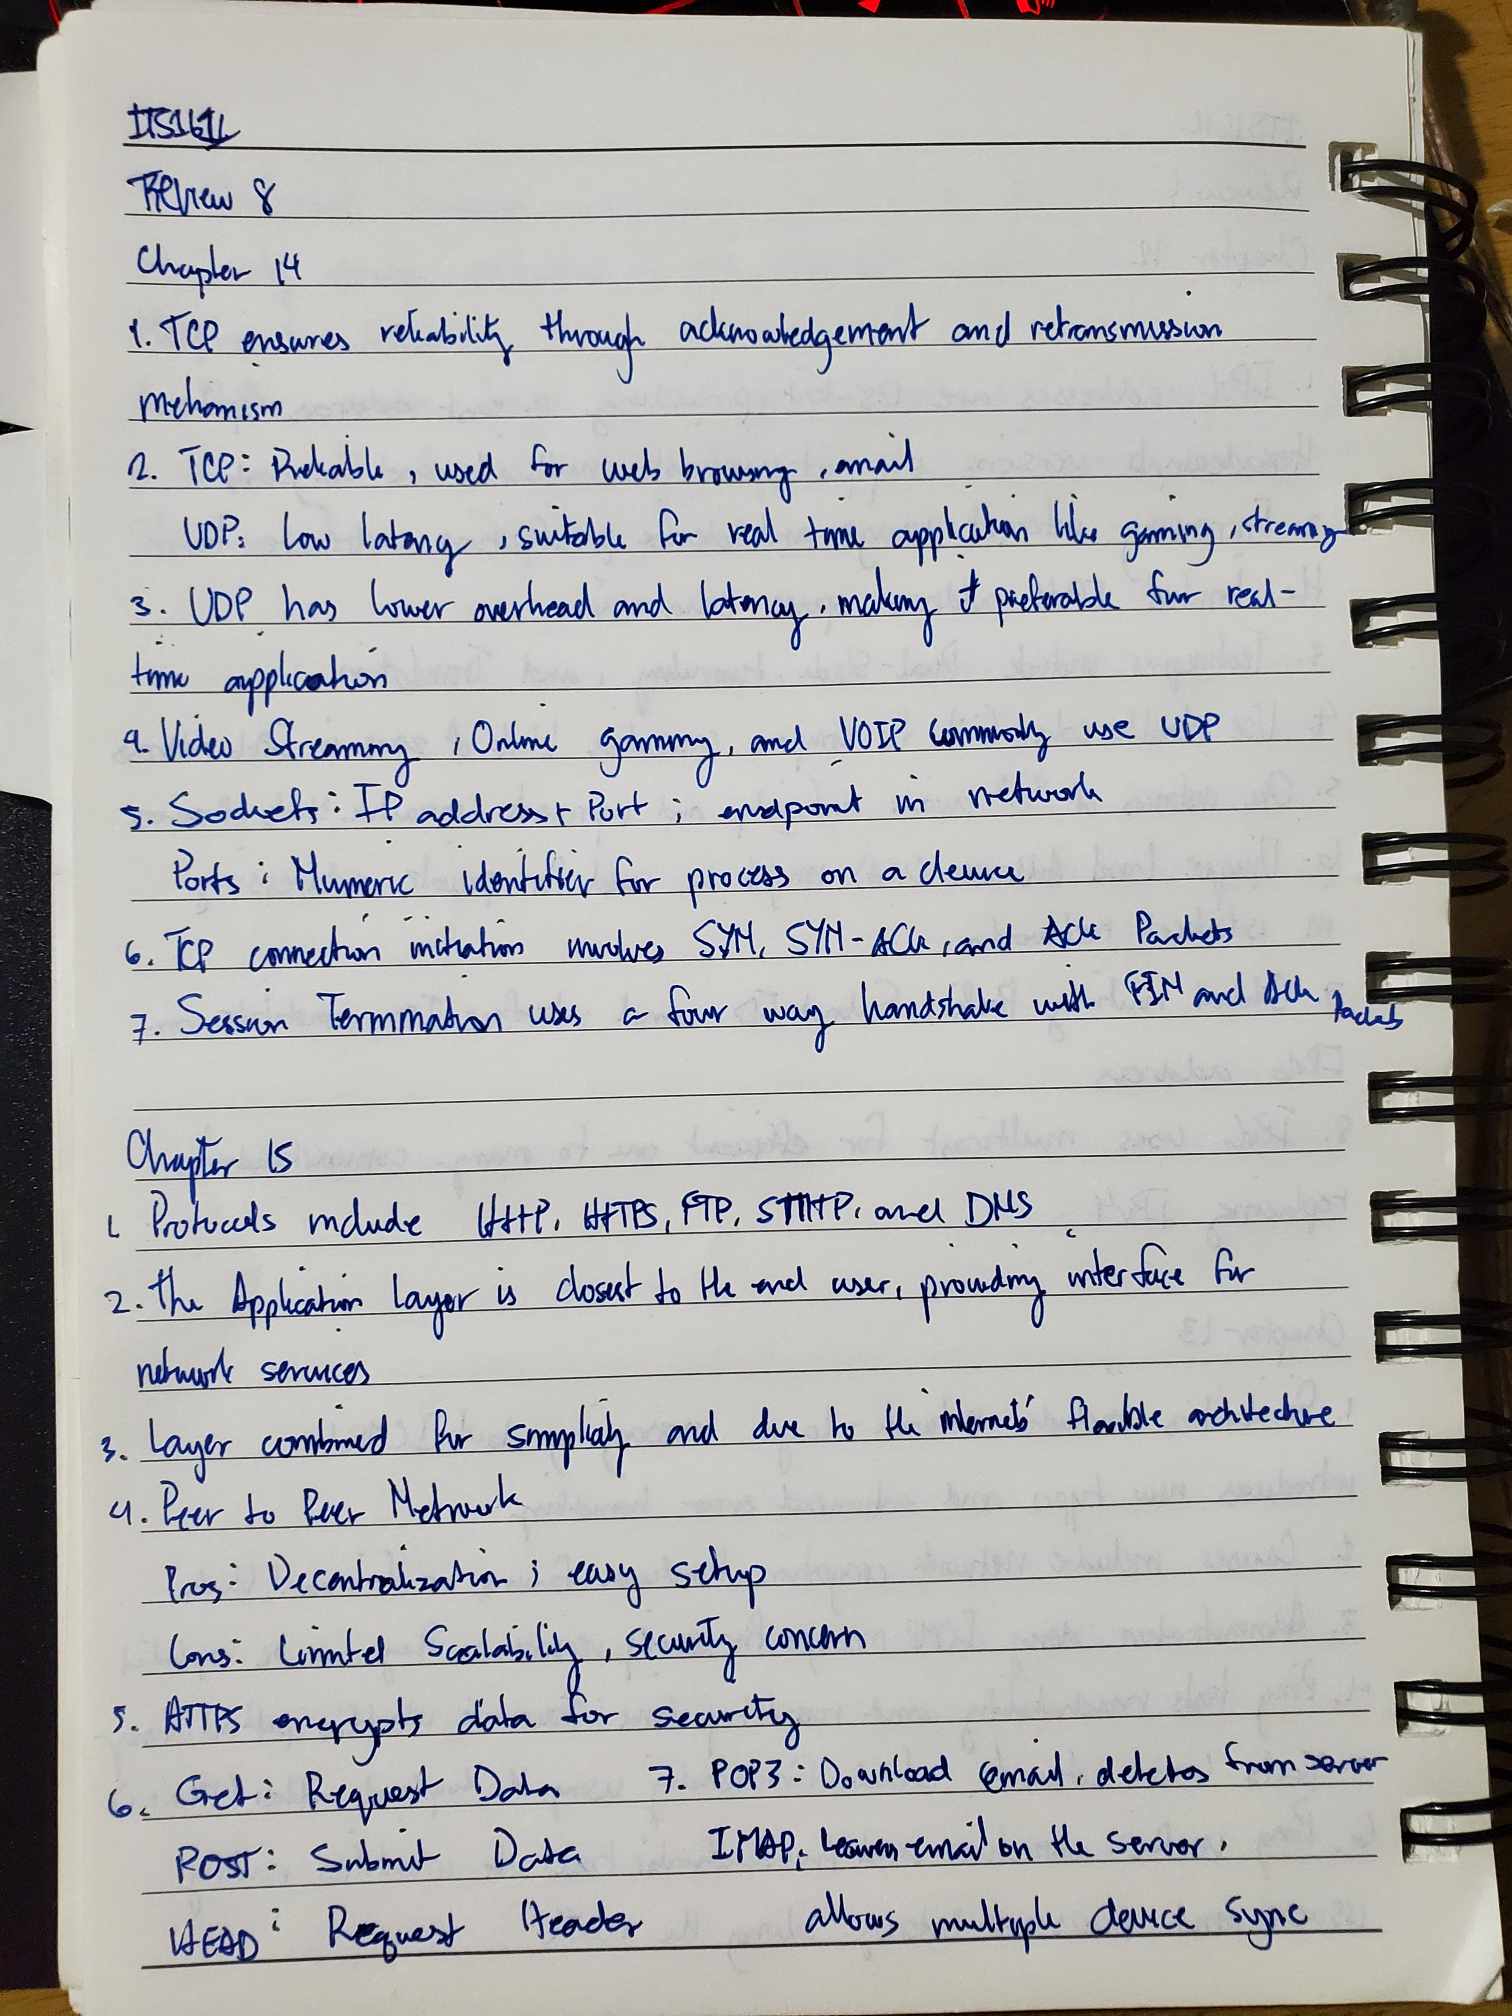 ITS161L
Review 8
Chapter 14
1. TCP ensures reliability through acknowledgement and retransmission
mehanism
2. TCP: Reliable, used for web browsing, email
UDP: Low latency, suitable for real time application like gaming, streaming
3. UDP has lower overhead and latency, making it preferable for real-
time application
4. Video Streaming, Online gaming, and VOIP commonly use UDP
5. Sockets: IP address + Port; endpoint in network
Ports: Numeric identifier for process on a device
6. TCP connection initiation involves SYN, SYN-ACK, and ACK Packets
7. Session Termination uses a four way handshake with FIN and Ack Packets
Chapter 15
1. Protocols include HTTP, HTTPS, FTP, SMTP, and DNS
2. The Application layer is closest to the end user, providing interface for
network services
3. Layer combined for simplicity and due to the internets' flexible architecture
4. Peer to Peer Network
Pros: Decentralization; easy setup
Cons: Limited Scalability, security concern
5. HTTPS encrypts data for security
6. Get: Request Data 7. POP3: Download email, deletes from server
POST: Submit Data IMAP: Leaves email on the server,
HEAD: Request Header allows multiple device sync